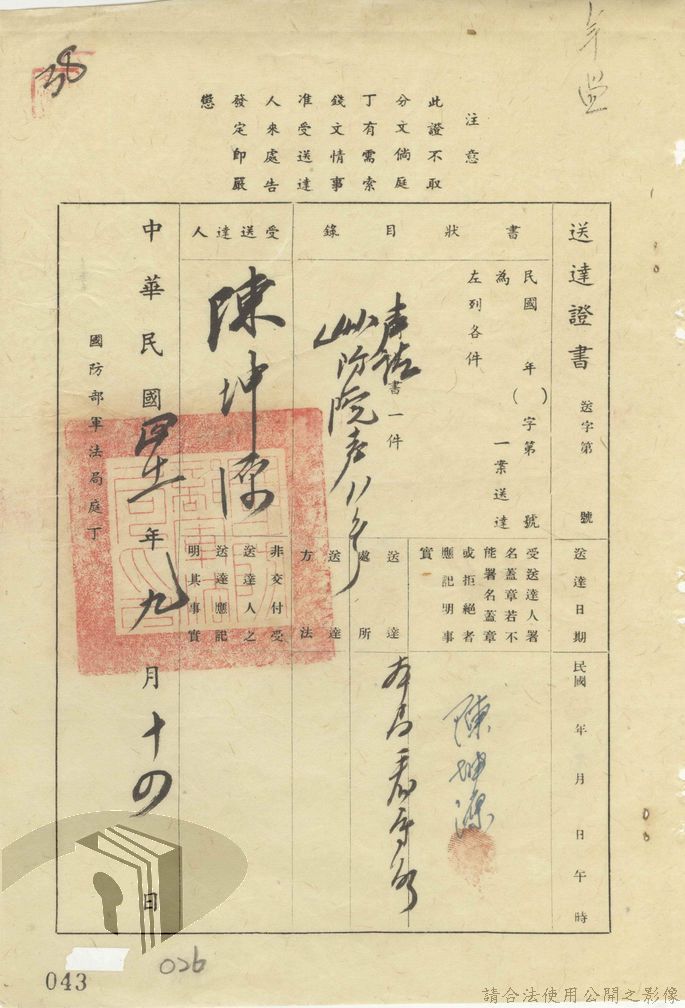 38
注意
此證不取
分文倘庭
丁有需索
錢文情事
准受送達
人來處告
發定即嚴
懲
送達證書 送字第 號
送達日期 民國 年 月 日 午 時
民國 年( )字第 號
為 一案送達
左列各件
受送達人署
名蓋章若不
能署名蓋章
或拒絕者
應記明事
實
陳坤源
書狀目錄
書一件
送達處所
送達方法
受送達人
陳坤源
非交付受
送達人之
送達應記
明其事實
中華民國 年九月十四日
國防部軍法局庭丁
043
026
請合法使用公開之影像